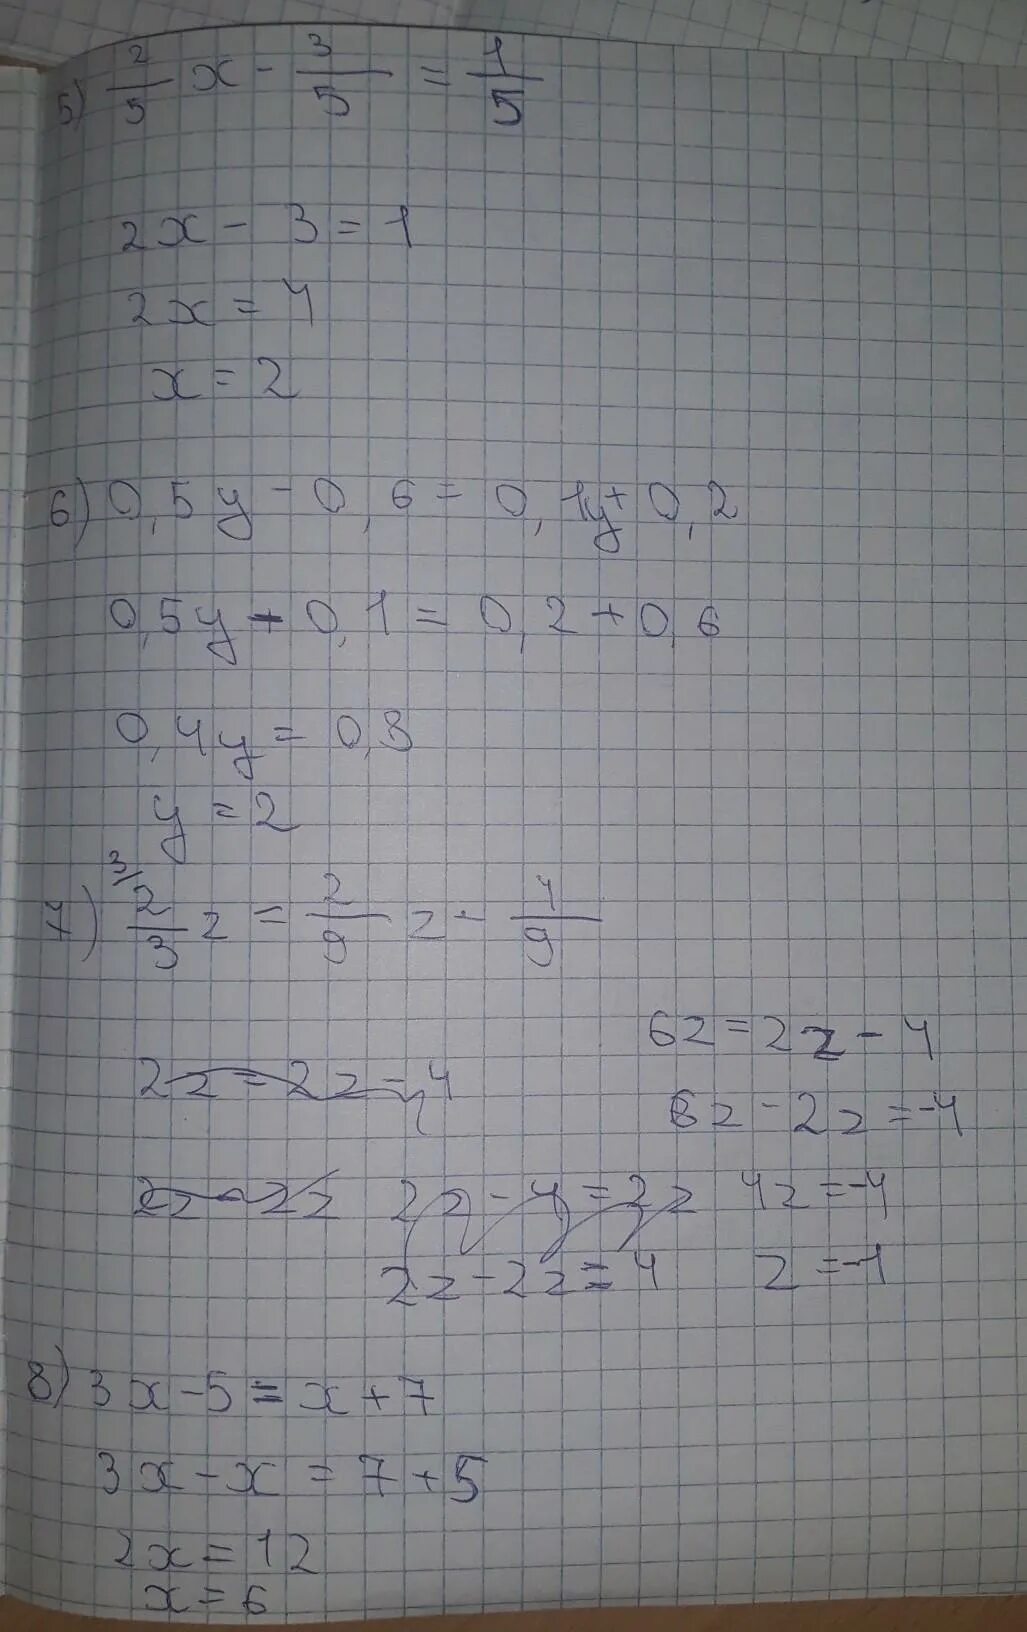 5) 2/5 x - 3/5 = 1/5
2x - 3 = 1
2x = 4
x = 2
6) 0,5y - 0,6 = 0,1y + 0,2
0,5y - 0,1 = 0,2 + 0,6
0,4y = 0,8
y = 2
7) 3/ 2/3 z = 2/9 z - 4/9
6z = 2z - 4
2z = 2z - 4
6z - 2z = -4
2z - 2z 2z - 4 = 2z 4z = -4
2z - 2z = 4 z = -1
8) 3x - 5 = x + 7
3x - x = 7 + 5
2x = 12
x = 6